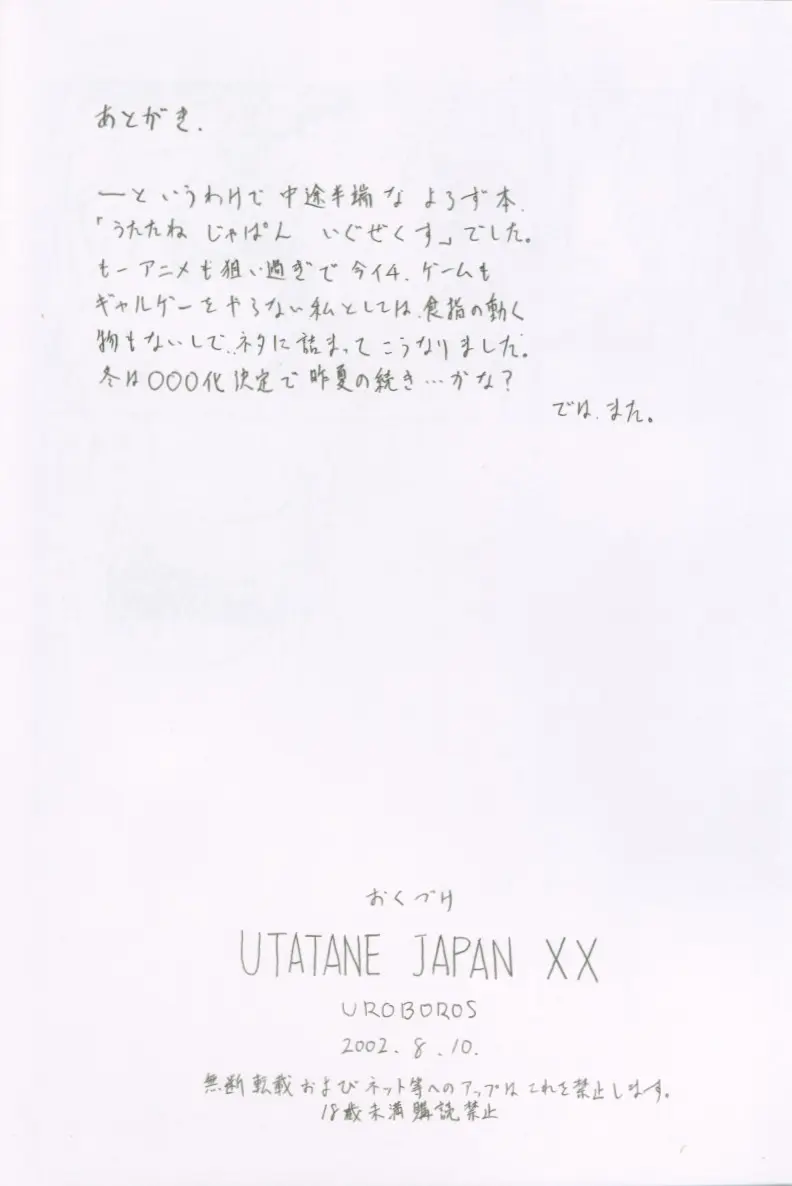 あとがき.
―というわけで 中途半端な よろず本.
「うたたね じゃぱん いぐぜくす」でした。
もーアニメも狙い過ぎで今イチ. ゲームも
ギャルゲーをやらない私としては、食指の動く
物もないしで、ネタに詰まってこうなりました。
冬は○○○化決定で昨夏の続き…かな?
では、また。
おくづけ
UTATANE JAPAN XX
UROBOROS
2002. 8. 10.
無断転載およびネット等へのアップはこれを禁止します。
18歳未満購読禁止